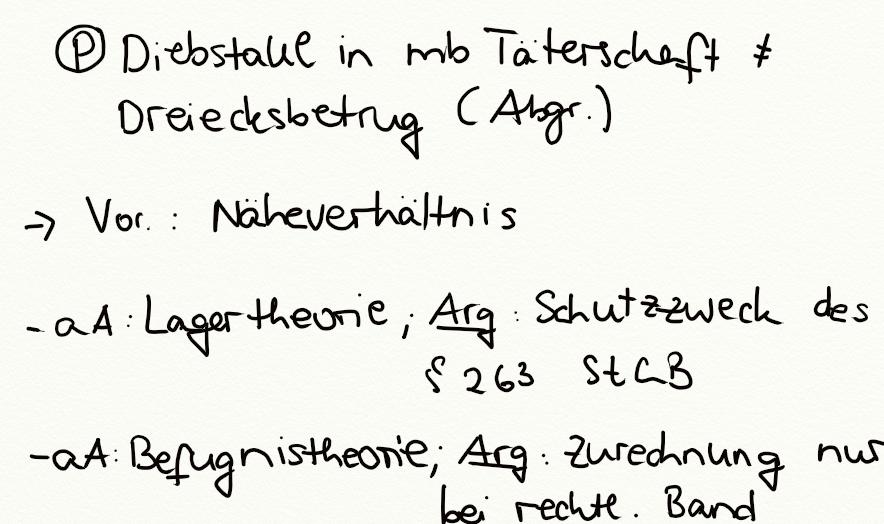 Ⓟ Diebstahl in mb Täterschaft ≠
Dreiecksbetrug (Abgr.)
→ Vor. : Näheverhältnis
- aA: Lagertheorie; Arg: Schutzzweck des
§ 263 StGB
- aA: Befugnistheorie; Arg: Zurechnung nur
bei rechtl. Band